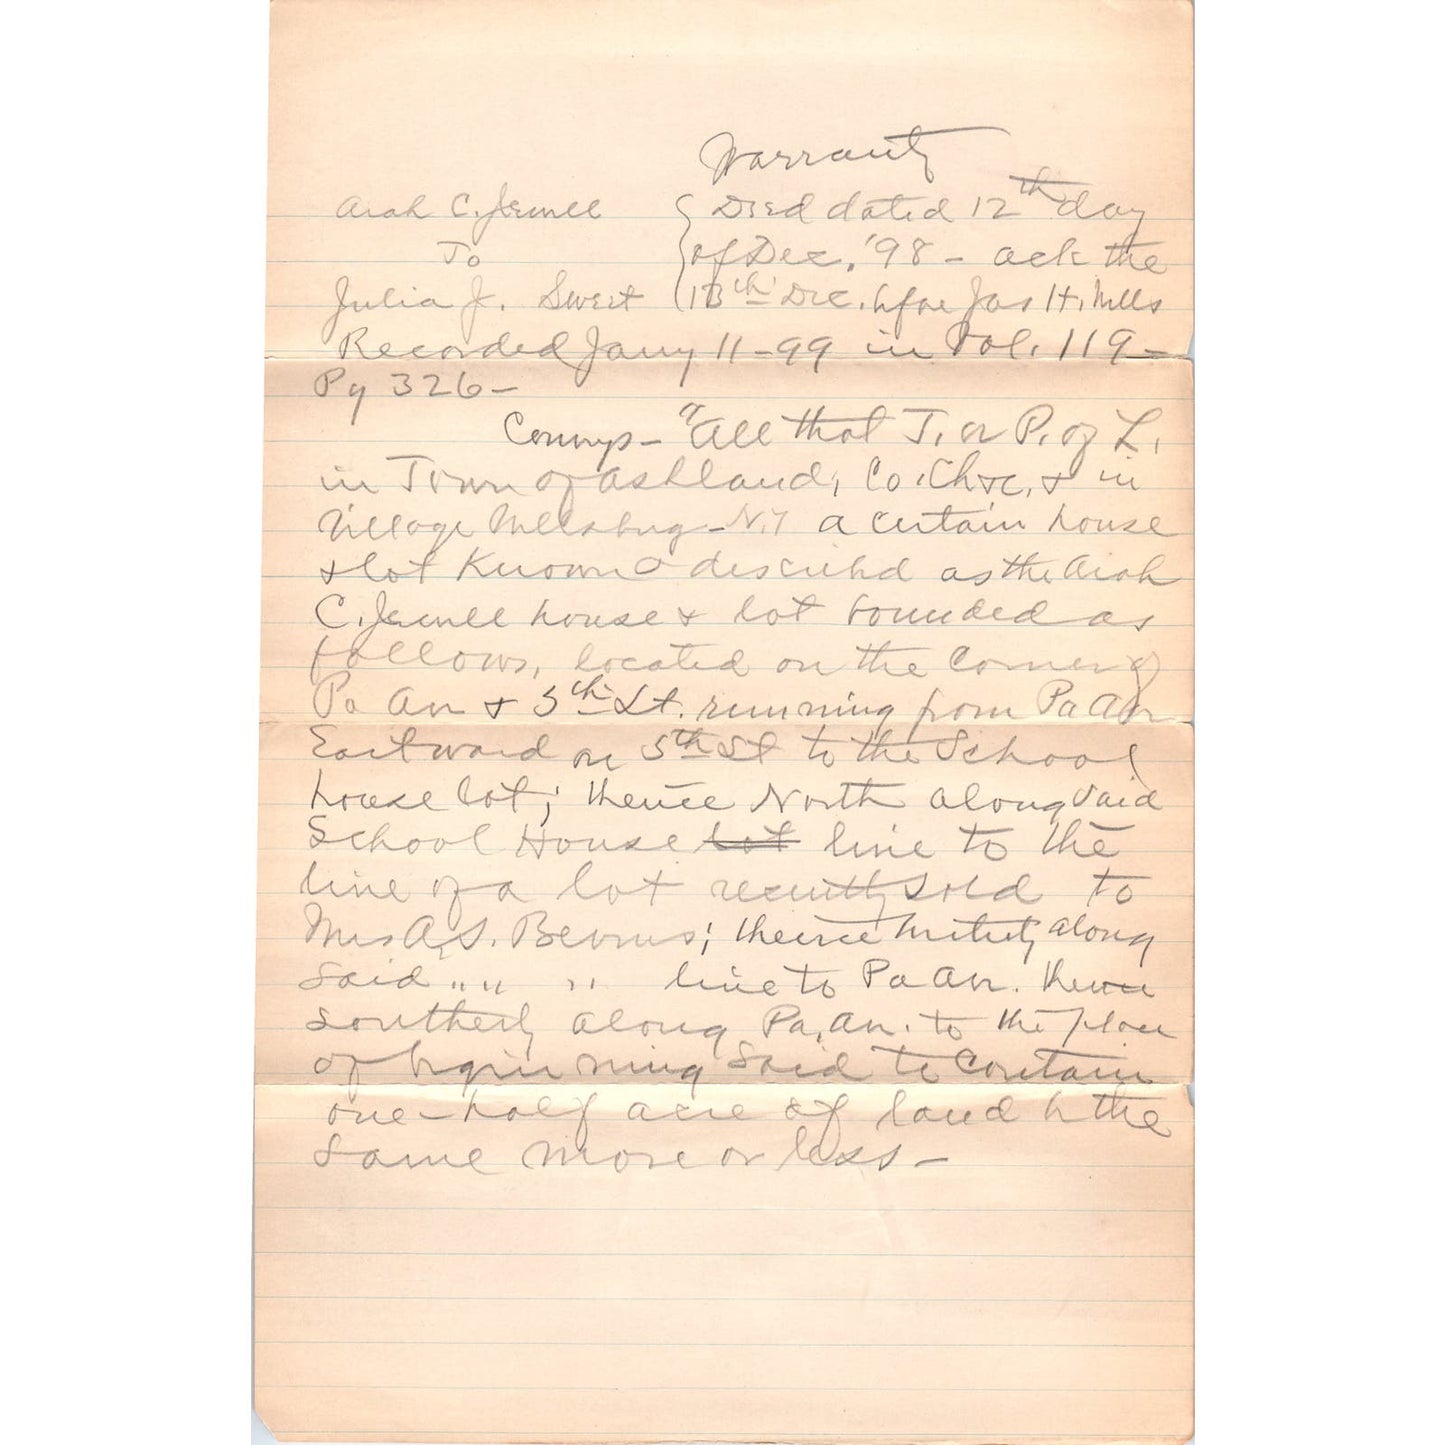 Warranty
Arah C. Jewell { Deed dated 12th day
To { of Dec. '98 - ack the
Julia J. Swett { 13th Dec. bfore Jas H. Mills
Recorded Jany 11-99 in Vol. 119-
Pg 326-
Conveys - "All that T. or P. of L.
in Town of Ashland, Co. Ch & c, & in
Village Millsburg - N.Y a certain house
& lot known & described as the Arah
C. Jewell house & lot bounded as
follows, located on the corner of
Pa Av & 5th St. running from Pa Av
Eastward on 5th St to the School
house lot; thence North along said
School House lot line to the
line of a lot recently sold to
Mrs A, S. Bevins; thence westerly along
said " " " " line to Pa Av. thence
southerly along Pa. Av. to the place
of beginning said to contain
one-half acre of land b the
same more or less -